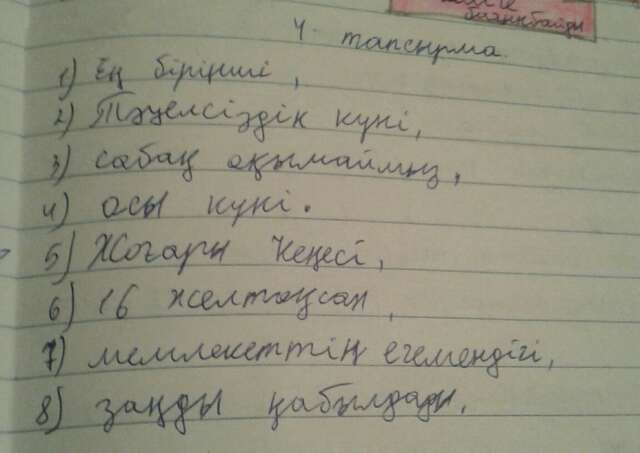 бағынбайды
4. тапсырма.
1) Ең бірінші,
2) Тәуелсіздік күні,
3) сабақ оқымаймыз,
4) осы күні.
5) Жоғары Кеңесі,
6) 16 желтоқсан,
7) мемлекеттің егемендігі,
8) заңды қабылдады.